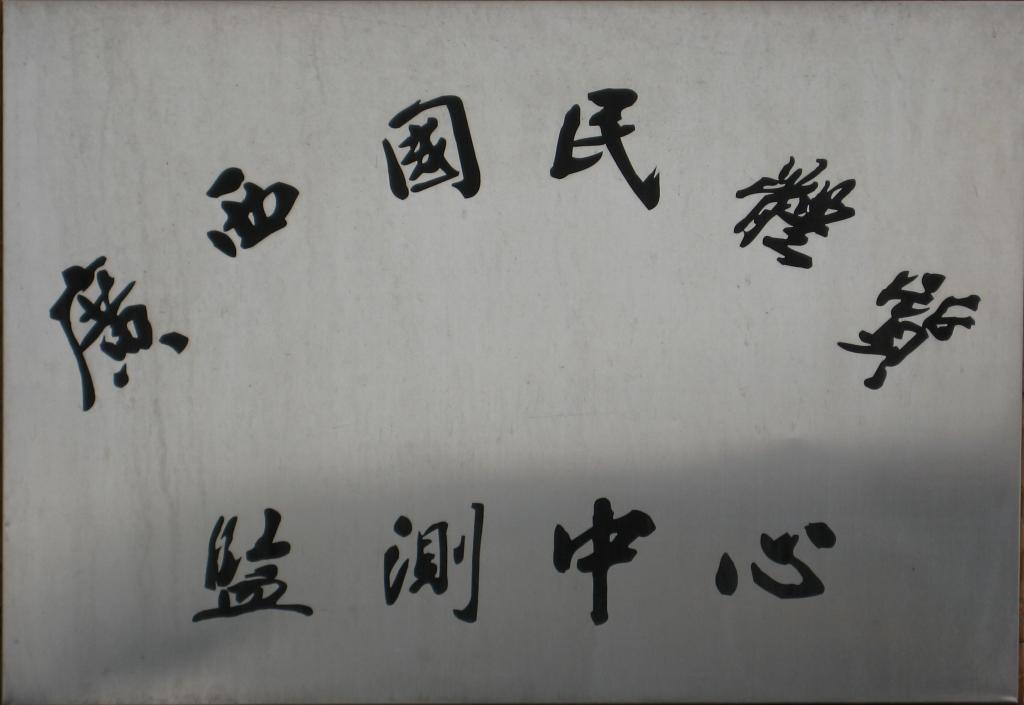 廣西國民體質
監測中心